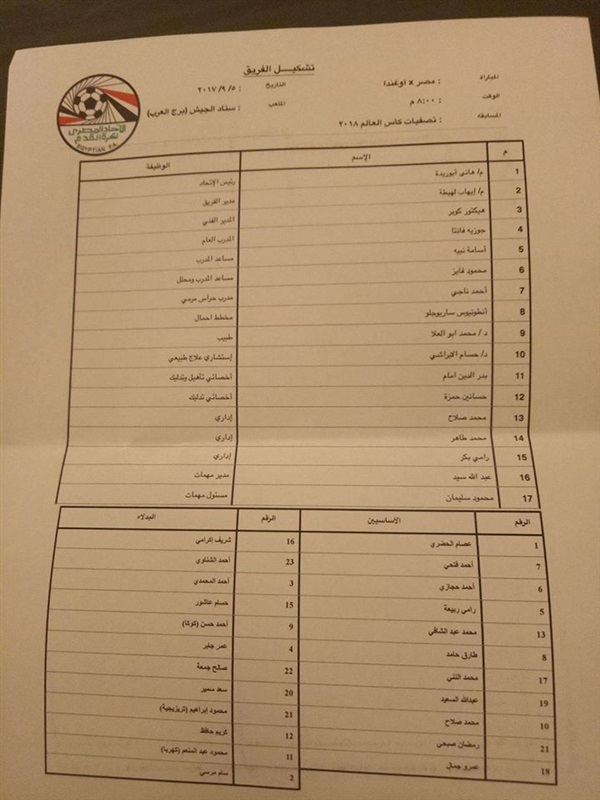 تشكيـــل الفريق
المباراه : مصر x اوغندا التاريخ : ٢٠١٧/٩/٥
الوقت : ٨:٠٠ م الملعب : ستاد الجيش (برج العرب)
المسابقه : تصفيات كاس العالم ٢٠١٨
الاتحاد المصرى
لكرة القدم
EGYPTIAN F.A.
م الإسم الوظيفة
1 م/ هانى أبوريدة رئيس الإتحاد
2 م/ إيهاب لهيطة مدير الفريق
3 هيكتور كوبر المدير الفني
4 جوزيه فانتا المدرب العام
5 أسامة نبيه مساعد المدرب
6 محمود فايز مساعد المدرب ومحلل
7 أحمد ناجي مدرب حراس مرمي
8 أنطونيوس ساريوجلو مخطط احمال
9 د / محمد ابو العلا طبيب
10 د/ حسام الابراشي إستشاري علاج طبيعي
11 بدر الدين امام أخصائي تأهيل وتدليك
12 حسانين حمزة أخصائي تدليك
13 محمد صلاح إداري
14 محمد طاهر إداري
15 رامي بكر إداري
16 عبد الله سيد مدير مهمات
17 محمود سليمان مسئول مهمات
الرقم الاساسيين الرقم البدلاء
1 عصام الحضري 16 شريف إكرامي
7 أحمد فتحي 23 أحمد الشناوي
6 أحمد حجازي 3 أحمد المحمدي
5 رامي ربيعة 15 حسام عاشور
13 محمد عبد الشافي 9 أحمد حسن (كوكا)
8 طارق حامد 4 عمر جابر
17 محمد النني 22 صالح جمعة
19 عبدالله السعيد 20 سعد سمير
10 محمد صلاح 21 محمود إبراهيم (تريزيجية)
21 رمضان صبحي 12 كريم حافظ
18 عمرو جمال 11 محمود عبد المنعم (كهربا)
2 سام مرسي